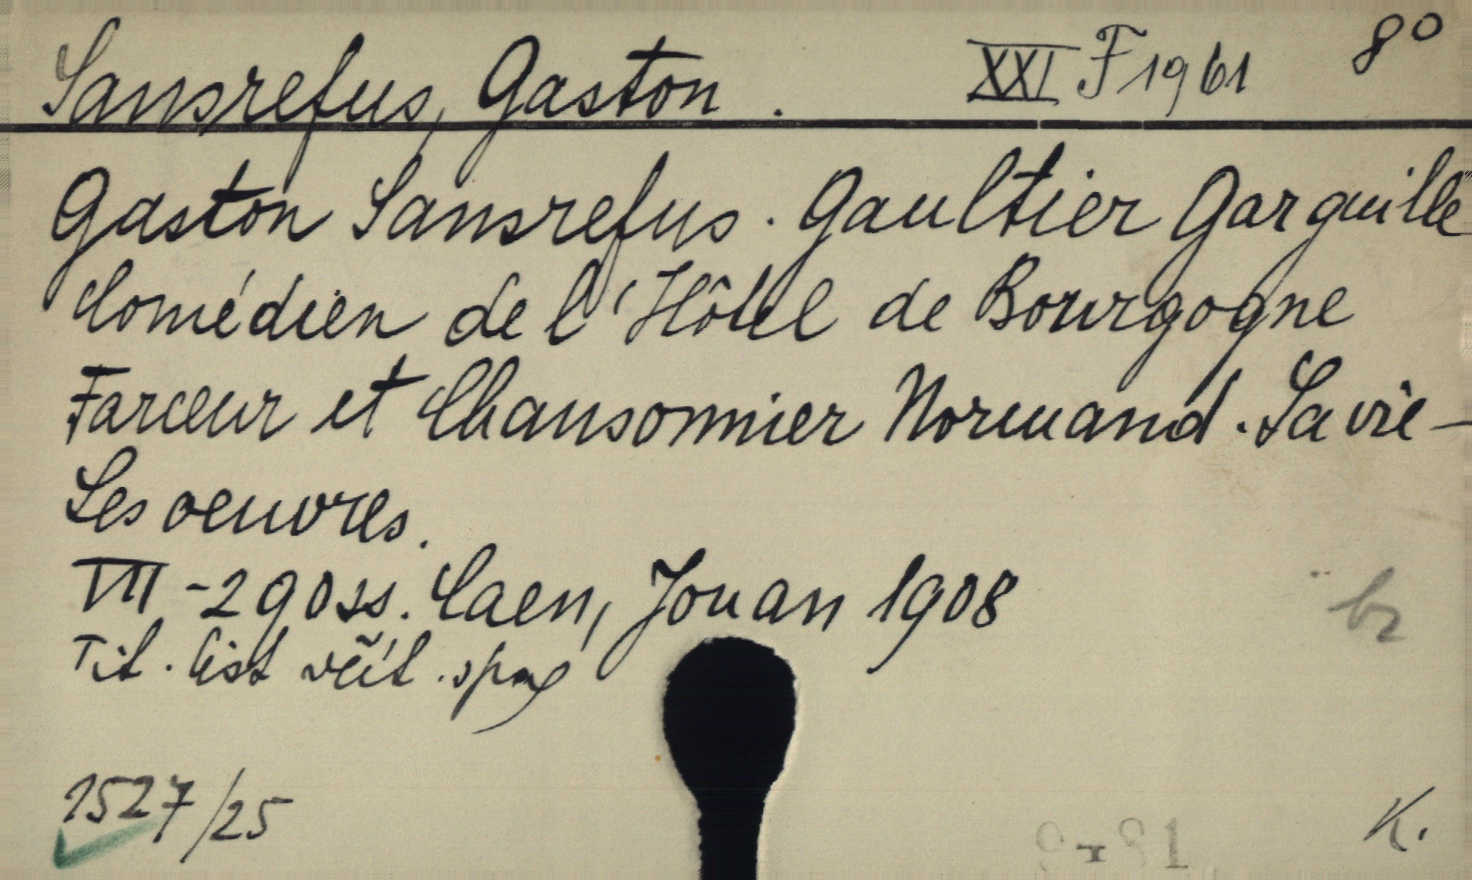 Sansrefus, Gaston. XXI F 1961 8°
Gaston Sansrefus. Gaultier Garguille
Comédien de l'Hôtel de Bourgogne
Farceur et Chansonnier Normand. Sa vie -
Ses oeuvres.
VII - 290 ss. Caen, Jouan 1908
Tit. list
1527/25
K.